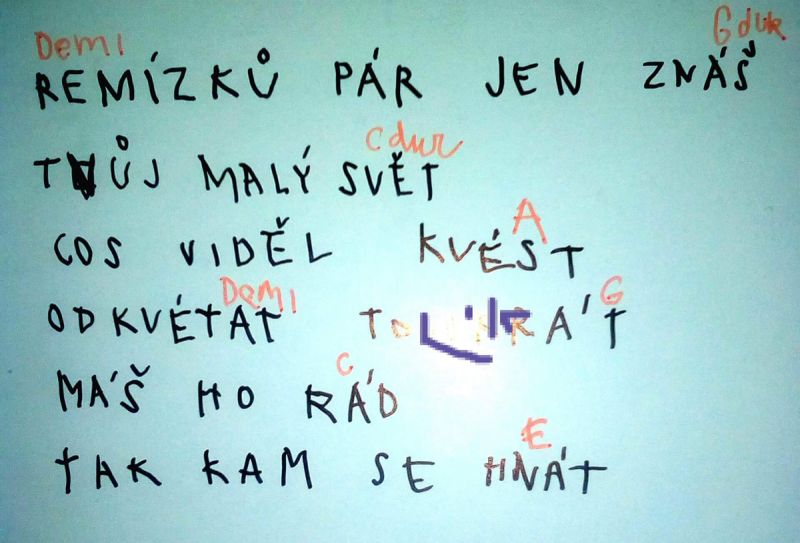 Demi Gdur
REMÍZKŮ PÁR JEN ZNÁŠ
Cdur
TVŮJ MALÝ SVĚT
A
COS VIDĚL KVÉST
Demi G
ODKVÉTAT
C
MÁŠ HO RÁD
E
TAK KAM SE HNÁT